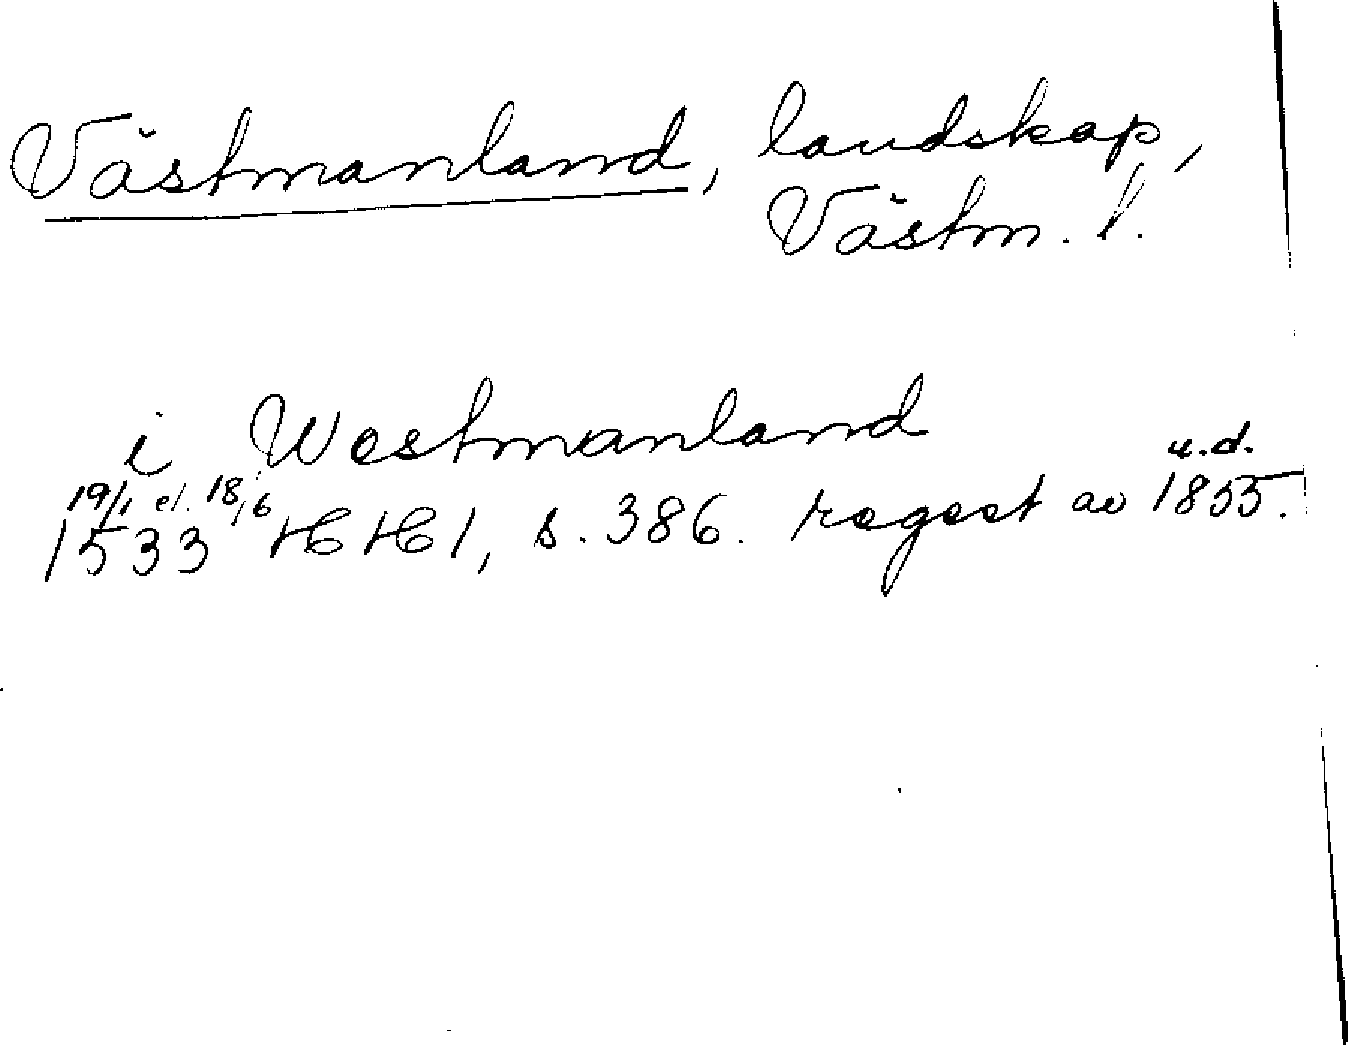 Västmanland, landskap,
Västm. l.
i Westmanland
19/1 el. 18/6 u.d.
1533 HH 1, s. 386. regest av 1855.